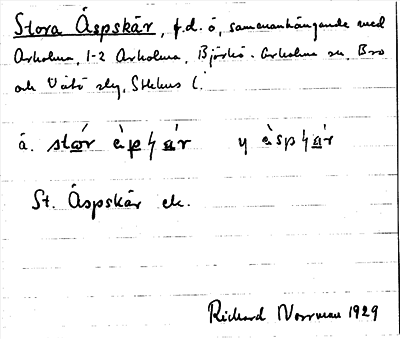 Stora Äspskär, f.d. ö, sammanhängande med
Arholma, 1-2 Arholma, Björkö-Arholma sn, Bro
och Vätö slg, Sthlms l.
ä. St. Äspskär ek.
Rickard Norrman 1929